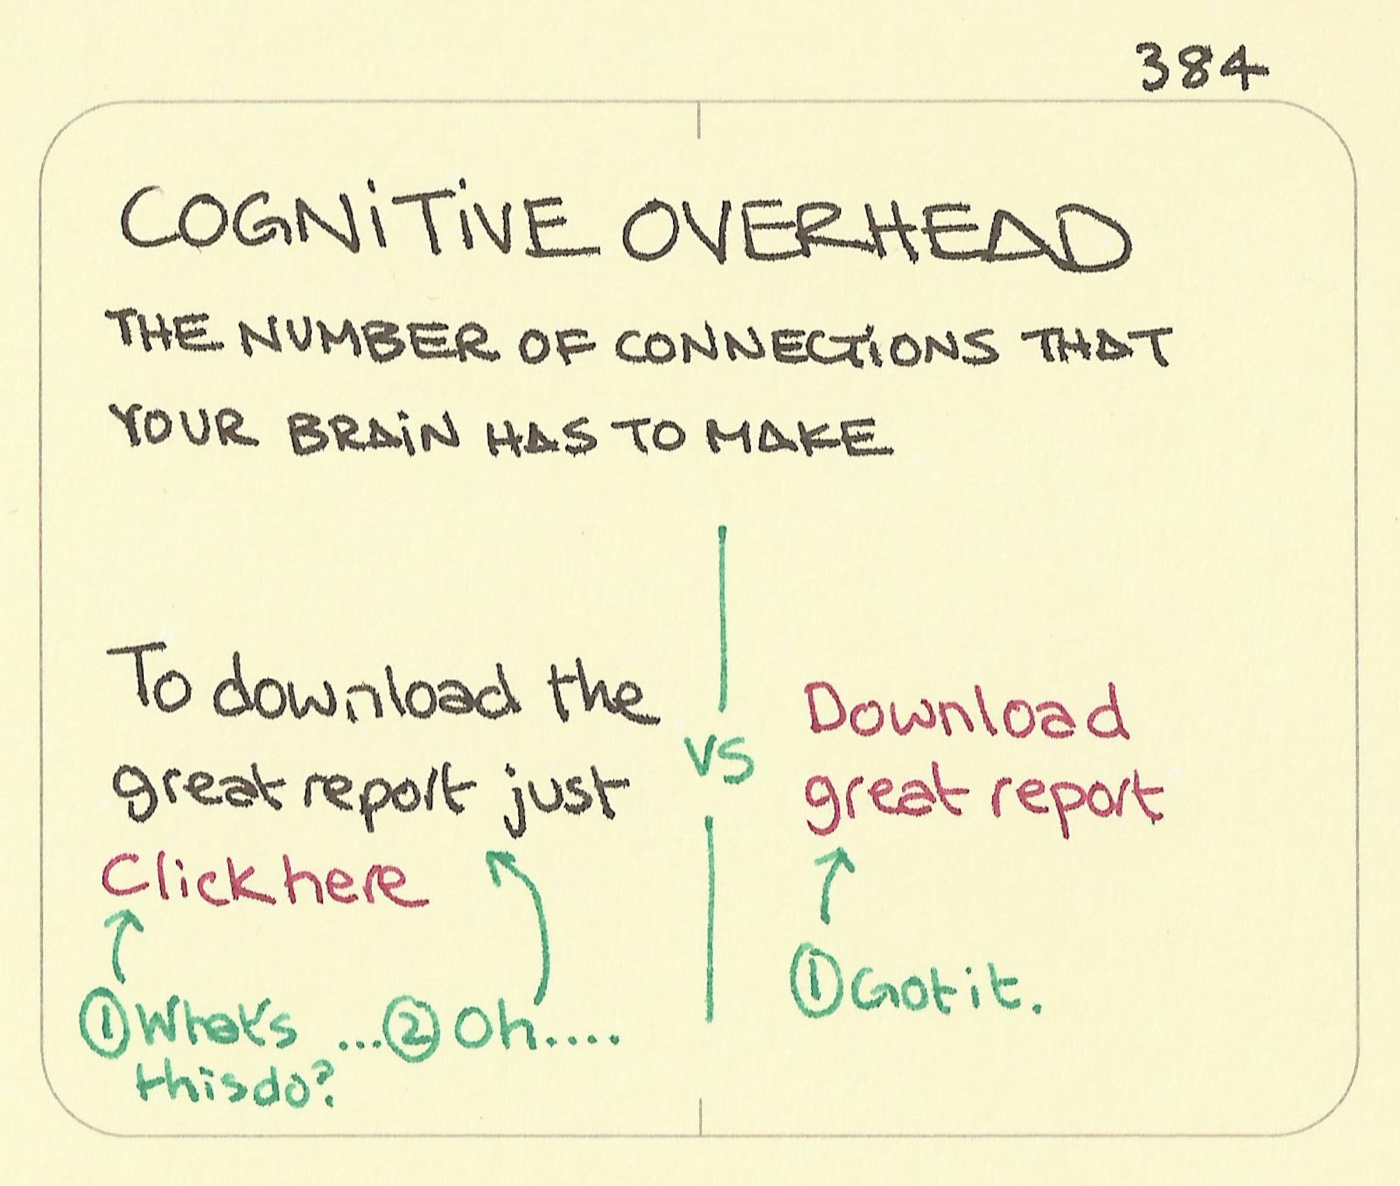 384
COGNITIVE OVERHEAD
THE NUMBER OF CONNECTIONS THAT
YOUR BRAIN HAS TO MAKE
To download the
great report just
Click here
① What's
this do?
...② Oh....
vs
Download
great report
① Got it.